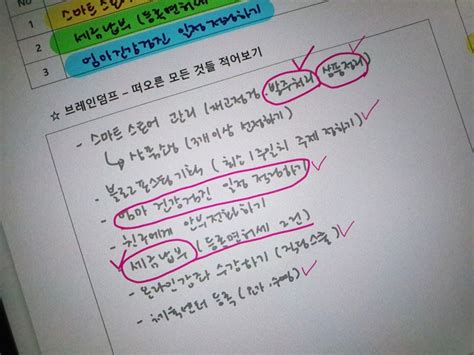 No
1 스마트스토
2 세금납부 (등록면허세
3 엄마건강검진 일정 적정하기
☆ 브레인덤프 – 떠오른 모든 것들 적어보기
- 스마트 스토어 관리 (재고점검, 발주처리, 상품정리)
↳ 상품소싱 (3개 이상 선정하기)
- 블로그 포스팅 기획 (최소 1주일치 주제 정하기)
- 엄마 건강검진 일정 적정하기
- 친구에게 안부전화하기
- 세금납부 (등록면허세 2건)
- 온라인강좌 수강하기 (직장스쿨)
- 체육센터 등록 (요가, 수영)